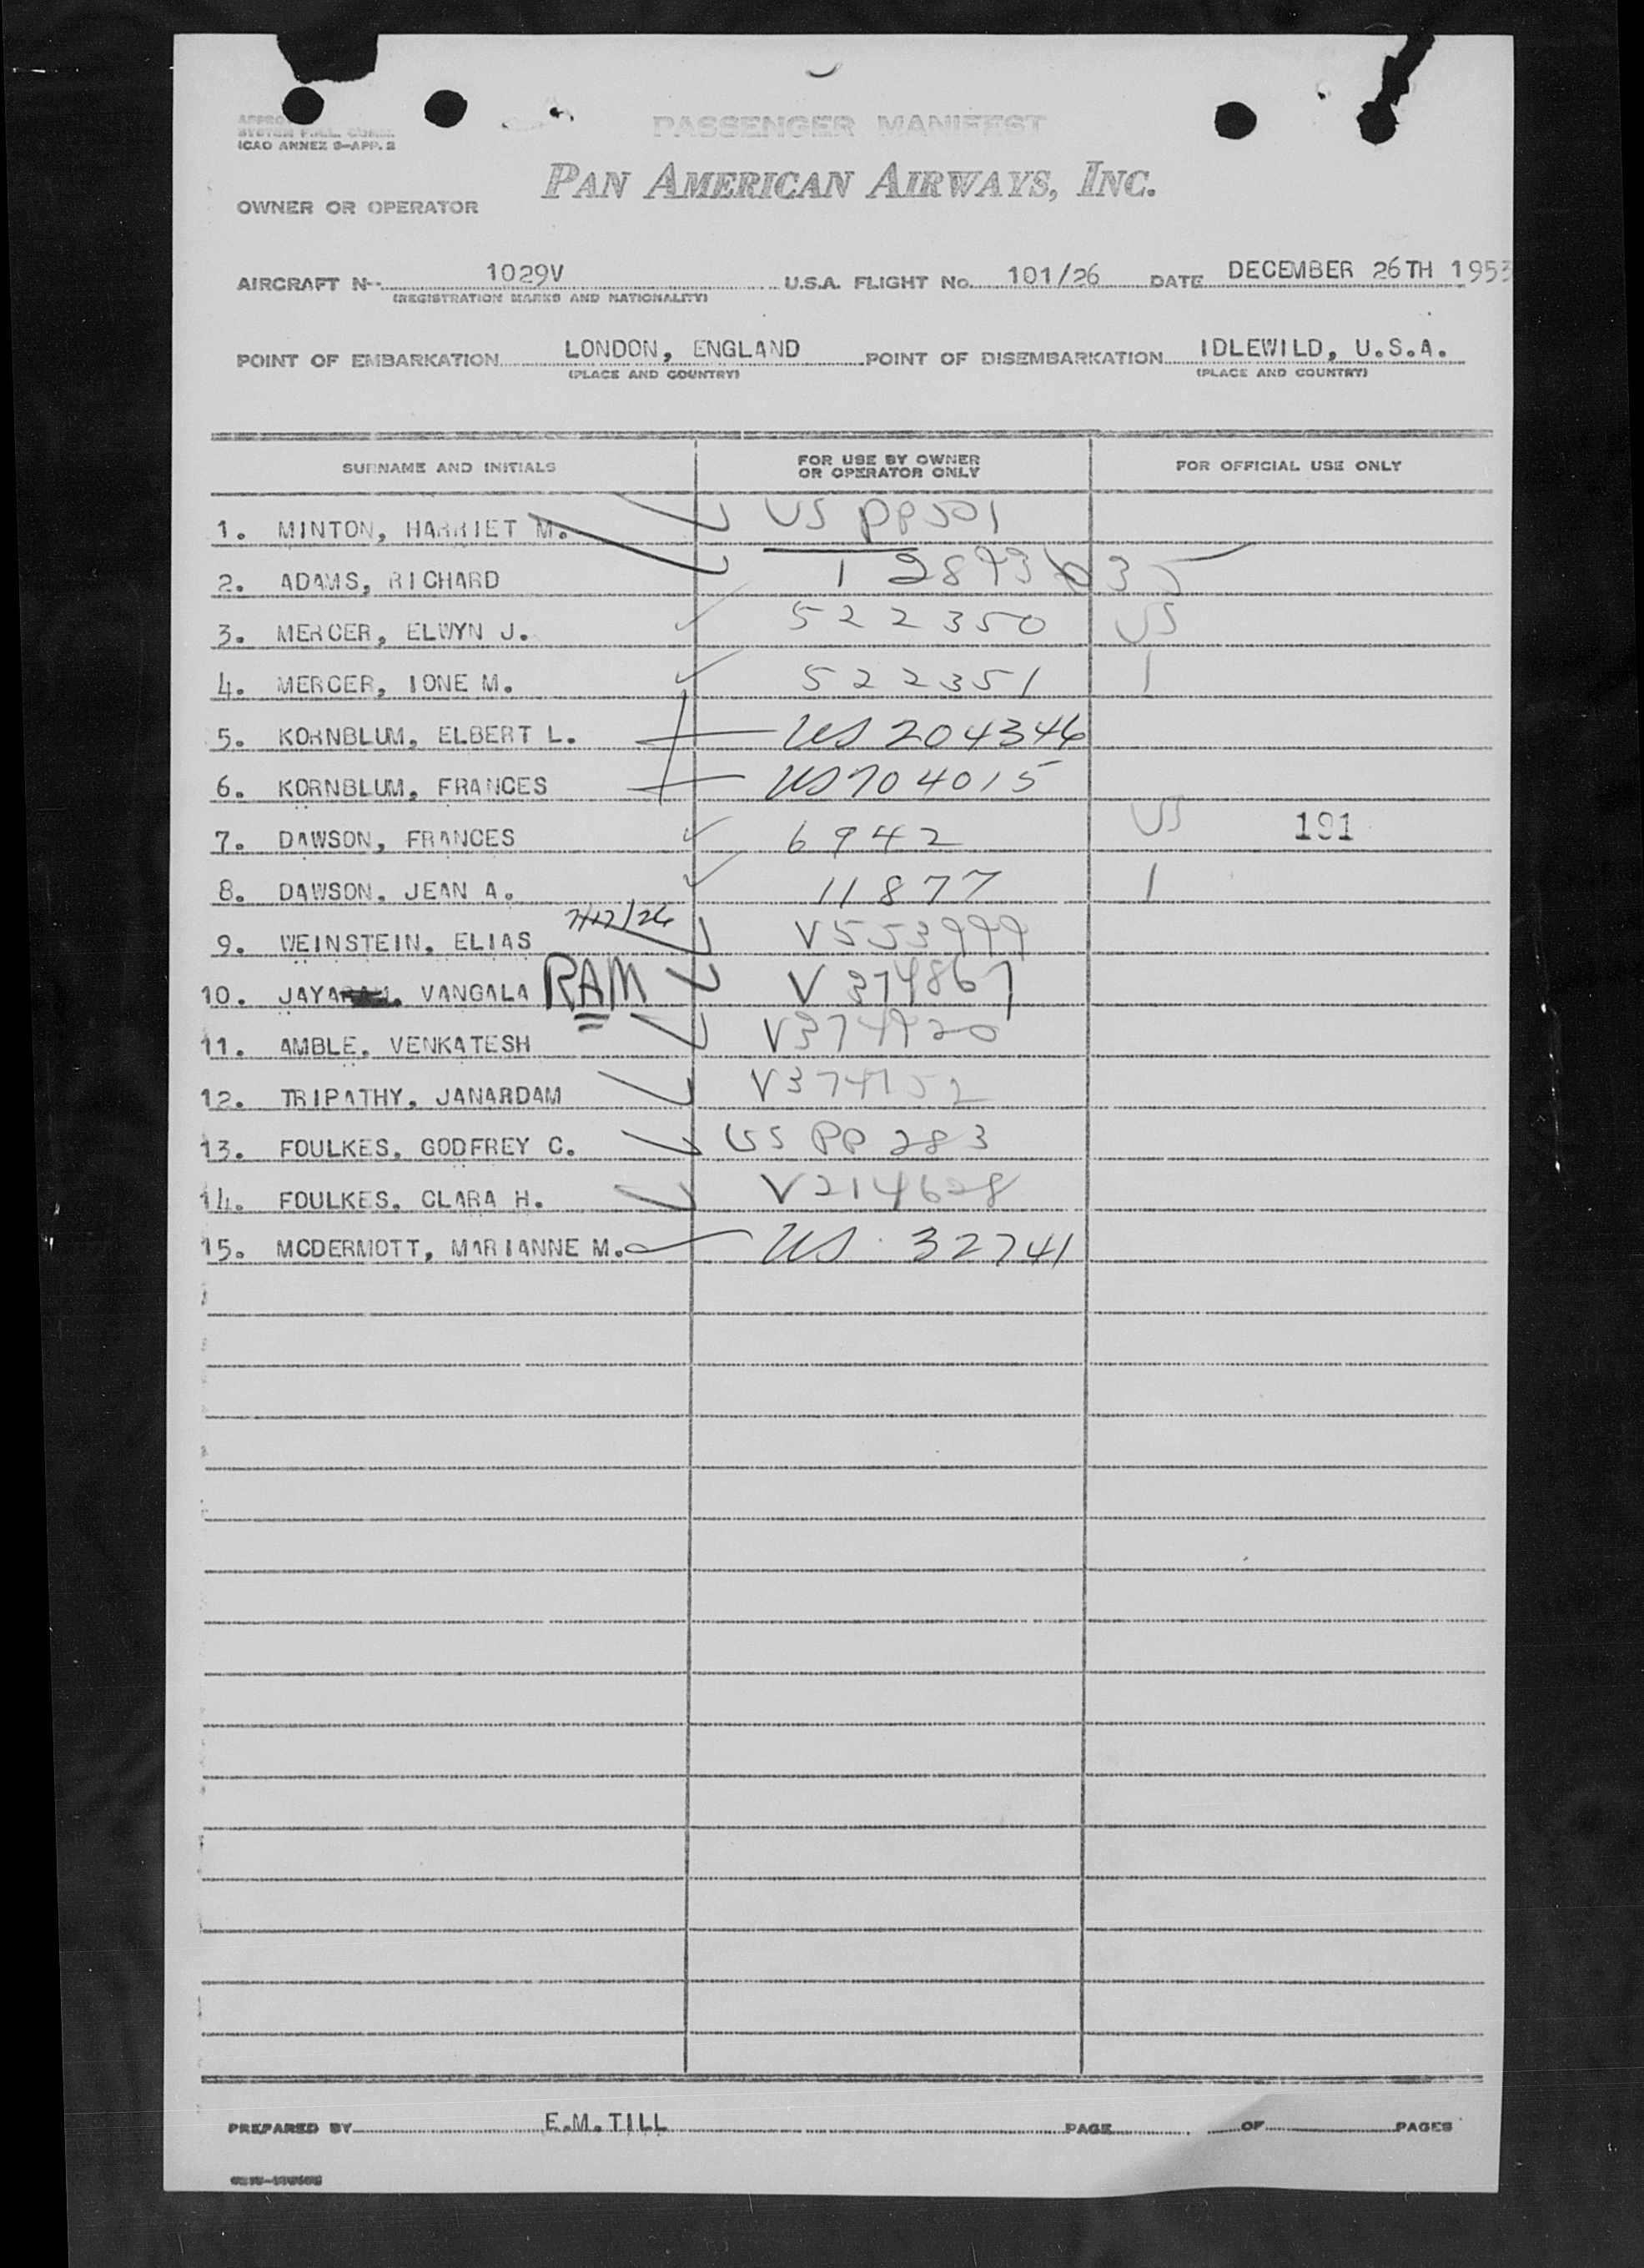 ICAO ANNEX 9-APP. 2
PASSENGER MANIFEST
PAN AMERICAN AIRWAYS, INC.
OWNER OR OPERATOR
AIRCRAFT N-- 1029V U.S.A. FLIGHT No. 101/26 DATE DECEMBER 26TH 1953
(REGISTRATION MARKS AND NATIONALITY)
POINT OF EMBARKATION LONDON, ENGLAND POINT OF DISEMBARKATION IDLEWILD, U.S.A.
(PLACE AND COUNTRY) (PLACE AND COUNTRY)
SURNAME AND INITIALS FOR USE BY OWNER OR OPERATOR ONLY FOR OFFICIAL USE ONLY
1. MINTON, HARRIET M. US PP501
2. ADAMS, RICHARD
3. MERCER, ELWYN J. 522350 US
4. MERCER, IONE M. 522351 |
5. KORNBLUM, ELBERT L. US 204346
6. KORNBLUM, FRANCES US 704015
7. DAWSON, FRANCES 6942 US 191
8. DAWSON, JEAN A. 11877 |
9. WEINSTEIN, ELIAS V553999
10. JAYARAM, VANGALA RAM V 374867
11. AMBLE, VENKATESH V374920
12. TRIPATHY, JANARDAM V374152
13. FOULKES, GODFREY C. US PP 283
14. FOULKES, CLARA H. V214628
15. MCDERMOTT, MARIANNE M. US 32741
PREPARED BY E.M.TILL PAGE OF PAGES